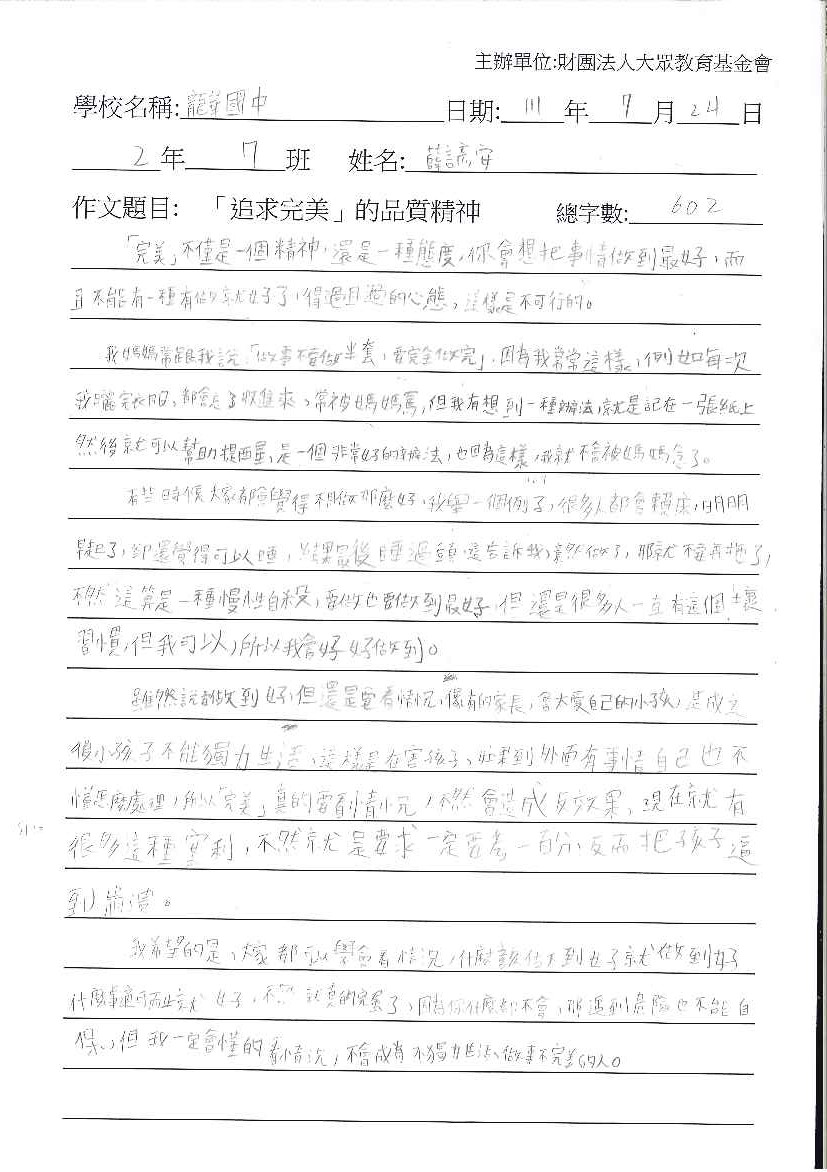 主辦單位:財團法人大眾教育基金會
學校名稱:龍華國中 日期: 111 年 7 月 24 日
2 年 7 班 姓名: 薛諺安
作文題目: 「追求完美」的品質精神 總字數: 602
「完美」不僅是一個精神,還是一種態度,你會想把事情做到最好,而
且不能有一種有做就好了,得過且過的心態,這樣是不可行的。
我媽媽常跟我說「做事不要做半套,要完全做完」,因為我常常這樣,例如每次
我曬完衣服,都會忘了收進來,常被媽媽罵,但我有想到一種辦法,就是記在一張紙上
然後就可以幫助提醒,是一個非常好的辦法,也因為這樣,我就不會被媽媽念了。
有些時候大家都會覺得不想做那麼好,我舉一個例子,很多人都會賴床,明明
起了,卻還覺得可以睡,結果最後睡過頭,還告訴我竟然做了,那就不要再拖了,
不然這算是一種慢性自殺,要做也要做到最好,但還是很多人一直有這個壞
習慣,但我可以,所以我會好好做到。
雖然說都做到好,但還是要看情況,像有的家長,會太愛自己的小孩,造成之
後小孩子不能獨力生活,這樣是在害孩子,如果到外面有事情自己也不
懂怎麼處理,所以「完美」真的要看情況,不然會造成反效果,現在就有
很多這種案例,不然就是要求一定要考一百分,反而把孩子逼
到崩潰。
我希望的是,大家都可以學會看情況,什麼該做到好就做到好
什麼事適可而止就好,不然就真的完蛋了,因為你什麼都不會,那遇到危險也不能自
保,但我一定會懂的看情況,不會成為不獨力生活、做事不完美的人。